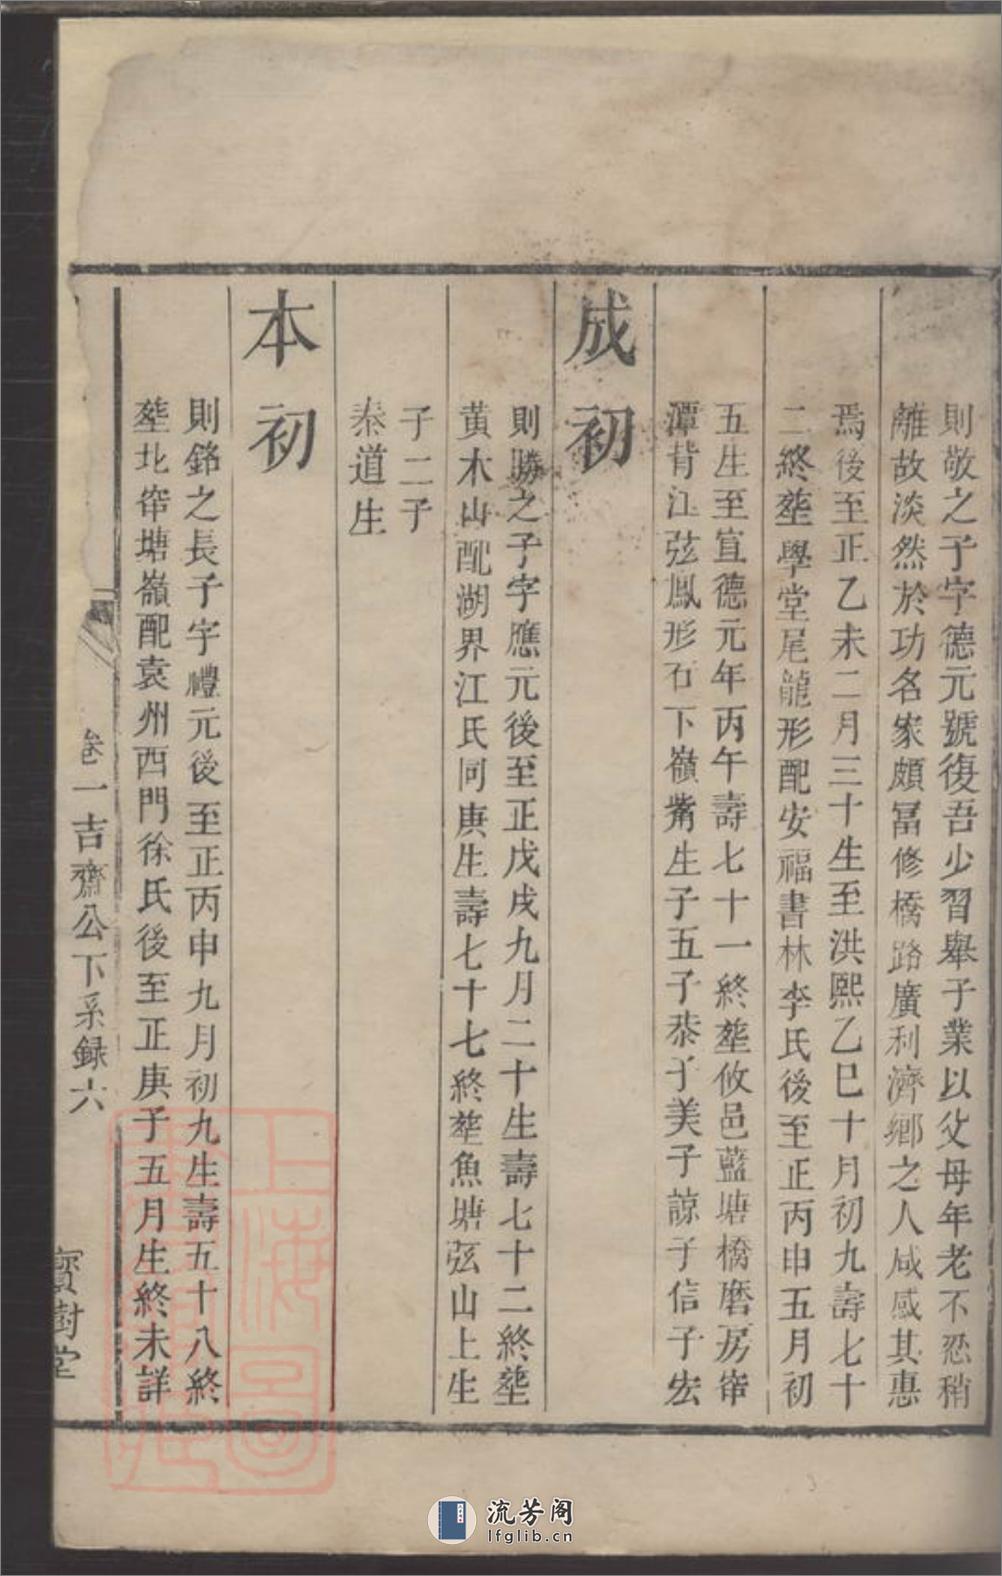 則敬之子字德元號復吾少習舉子業以父母年老不忍稍
離故淡然於功名家頗冨修橋路廣利濟鄉之人咸感其惠
焉後至正乙未二月三十生至洪熙乙巳十月初九壽七十
二終塟學堂尾龍形配安福書林李氏後至正丙申五月初
五生至宣德元年丙午壽七十一終塟攸邑藍塘橋磨房窜
潭背江弦鳳形石下嶺觜生子五子恭子美子諒子信子宏
成初
則勝之子字應元後至正戊戌九月二十生壽七十二終塟
黄木山配湖界江氏同庚生壽七十七終塟魚塘弦山上生
子二子
泰道生
本初
則銘之長子字禮元後至正丙申九月初九生壽五十八終
塟北窜塘嶺配袁州西門徐氏後至正庚子五月生終未詳
卷一吉齋公下系録六
寳樹堂
上海圖
書館藏
流芳阁
lfglib.cn